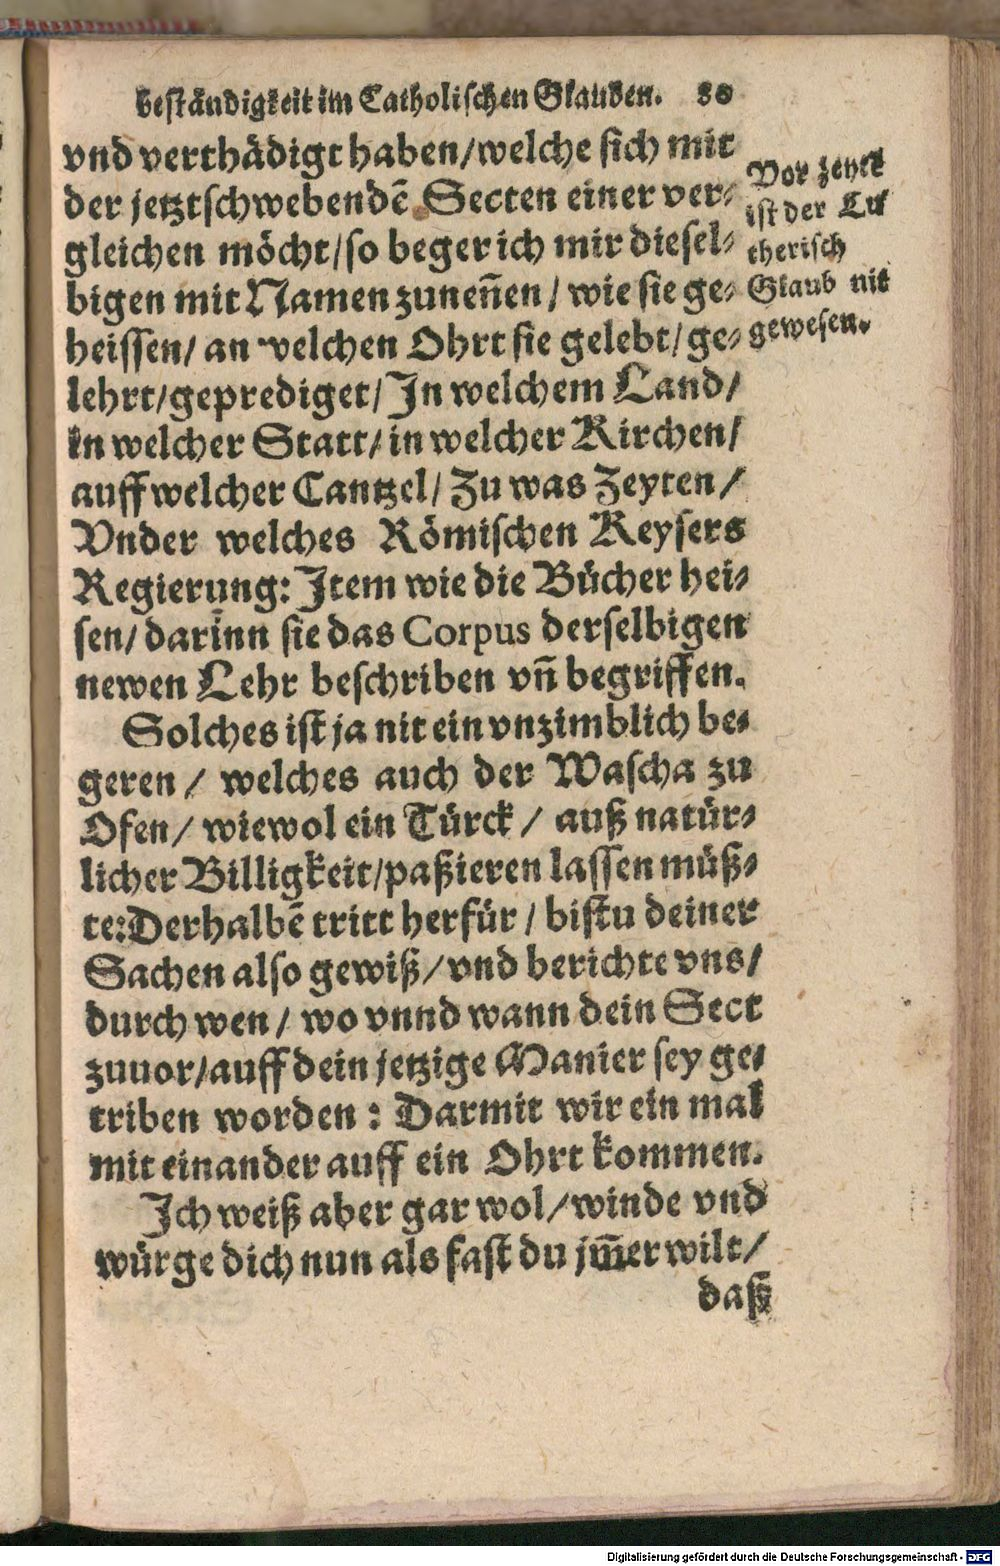 beständigkeit im Catholischen Glauben. 80
vnd verthädigt haben/welche sich mit
der jetztschwebendē Secten einer ver⸗
gleichen möcht/so beger ich mir diesel⸗
bigen mit Namen zuneñen/ wie sie ge⸗
heissen/ an welchen Ohrt sie gelebt/ ge⸗
lehrt/geprediget/ In welchem Land/
in welcher Statt/ in welcher Kirchen/
auff welcher Cantzel/ Zu was Zeyten/
Vnder welches Römischen Keysers
Regierung: Item wie die Bücher hei⸗
sen/ dariñn sie das Corpus derselbigen
newen Lehr beschriben vñ begriffen.
Vor zeyte
ist der Lu
therisch
Glaub nit
gewesen.
Solches ist ja nit ein vnzimblich be⸗
geren / welches auch der Wascha zu
Ofen/ wiewol ein Türck / auß natür⸗
licher Billigkeit/paßieren lassen müß⸗
te: Derhalbē tritt herfür / bistu deiner
Sachen also gewiß/vnd berichte vns/
durch wen / wo vnnd wann dein Sect
zuuor/auff dein jetzige Manier sey ge⸗
triben worden : Darmit wir ein mal
mit einander auff ein Ohrt kommen.
Ich weiß aber gar wol/winde vnd
würge dich nun als fast du jm̄er wilt/
daß
Digitalisierung gefördert durch die Deutsche Forschungsgemeinschaft - DFG